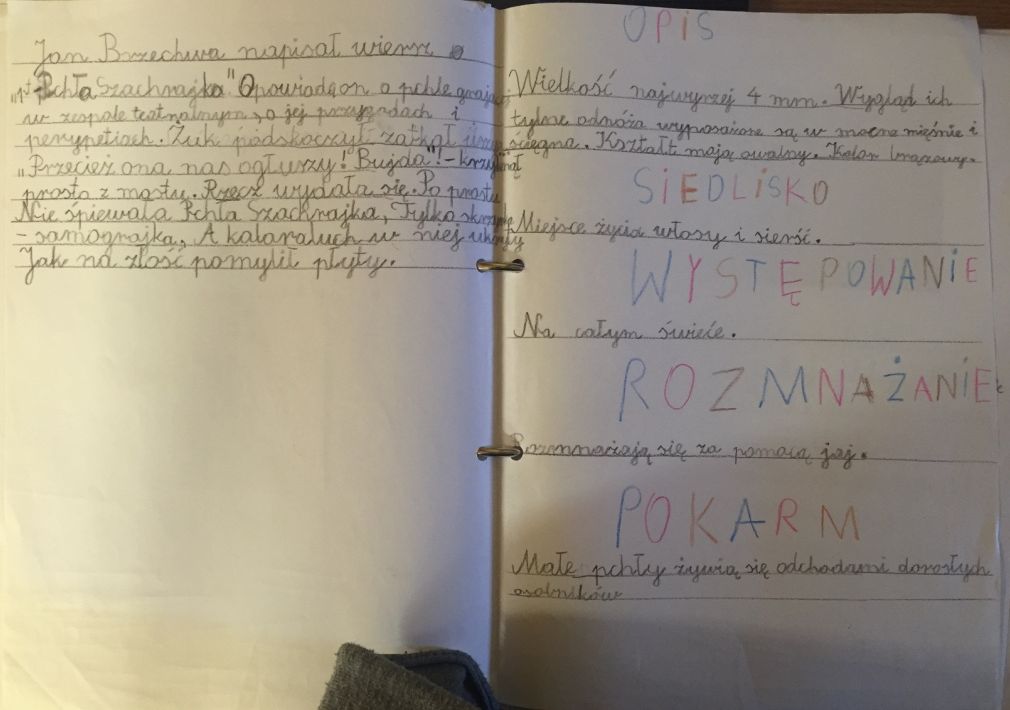 Jan Brzechwa napisał wiersz
"pt-Pchła Szachrajka." Opowiada on o pchle grającej
w zespole teatralnym, o jej przygodach i
perypetiach. Żuk podskoczył: zatkał uszy
"Przecież ona nas ogłuszy!" Bujda"!- krzyknął
prosto z mostu. Rzecz wydała się. Po prostu
Nie śpiewała Pchła Szachrajka, Tylko skrzynka
- samograjka, A kataraluch w niej ukryty
Jak na złość pomylił płyty.
OPIS
Wielkość najwyrzej 4 mm. Wygląd ich
tylne odnóża wyposażone są w mocne mięśnie i
ścięgna. Kształt mają owalny. Kolor brązowy.
SIEDLISKO
Miejsce życia włosy i sierść.
WYSTĘPOWANIE
Na całym świeće.
ROZMNAŻANIE
Rozmnażają się za pomocą jaj.
POKARM
Małe pchły żywią się odchodami dorosłych
osobników